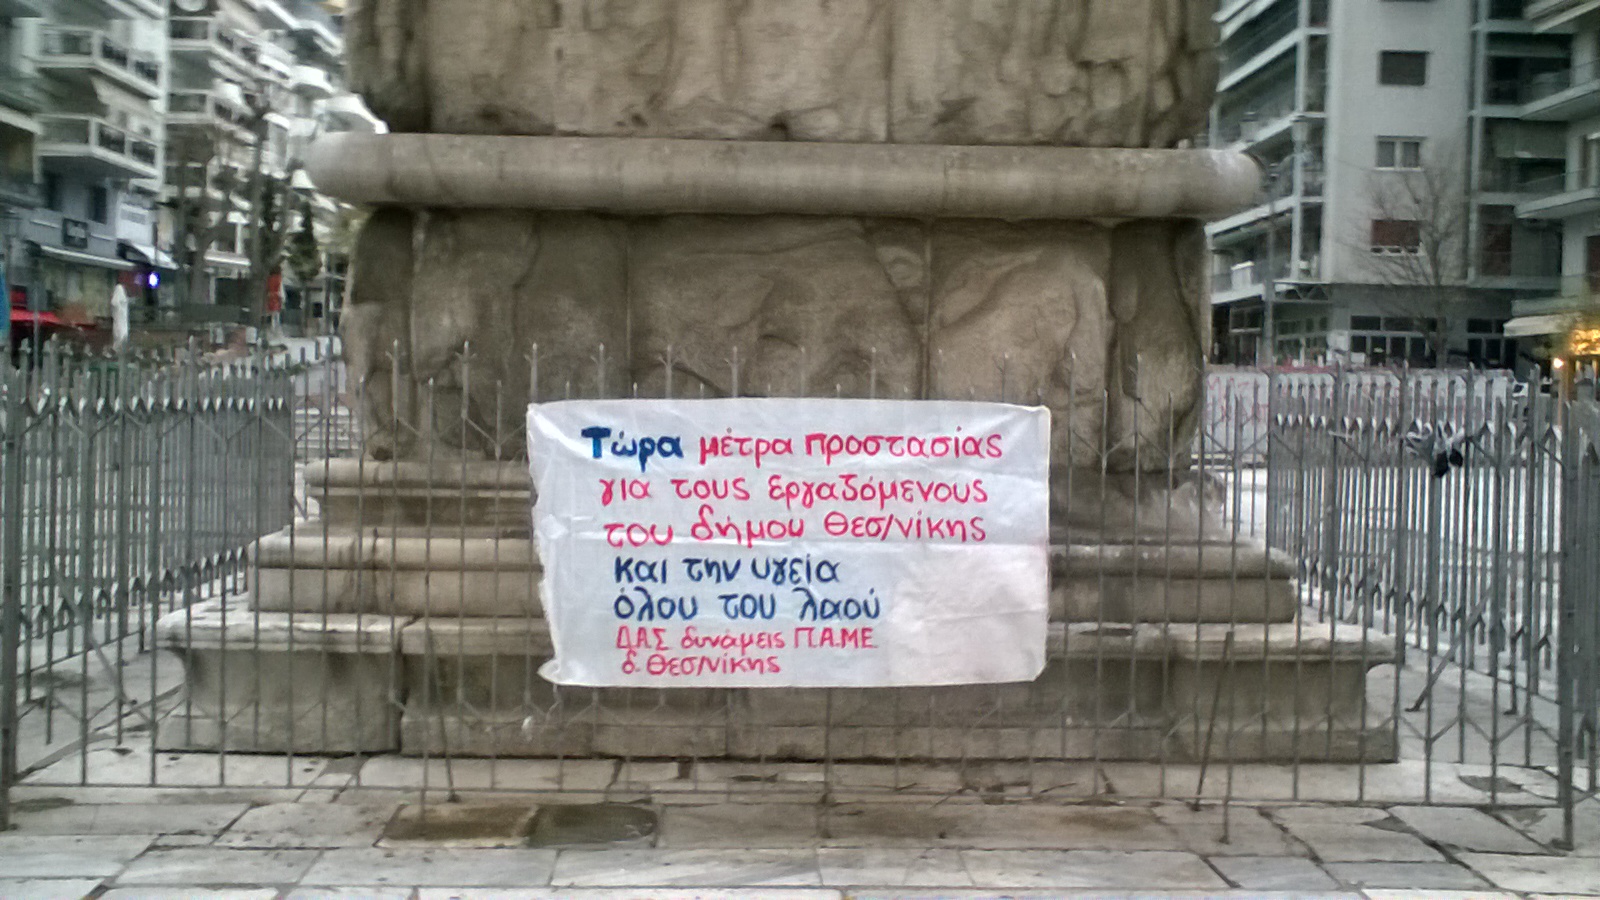 Τώρα μέτρα προστασίας
για τους εργαζόμενους
του δήμου Θεσ/νίκης
και την υγεία
όλου του λαού
Δ.Α.Σ δυνάμεις Π.Α.ΜΕ
δ. Θεσ/νίκης